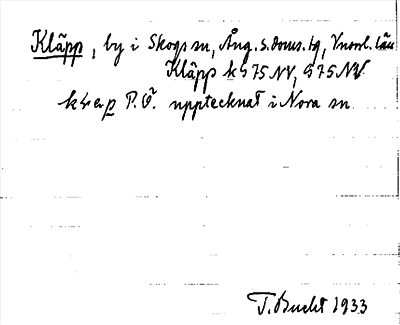 Kläpp, by i Skogs sn, Ång. s. doms. tg, Vnorrl. län
Kläpp k 575 NV, G 75 NV
P. Ö. upptecknat i Nora sn
T. Bucht 1933